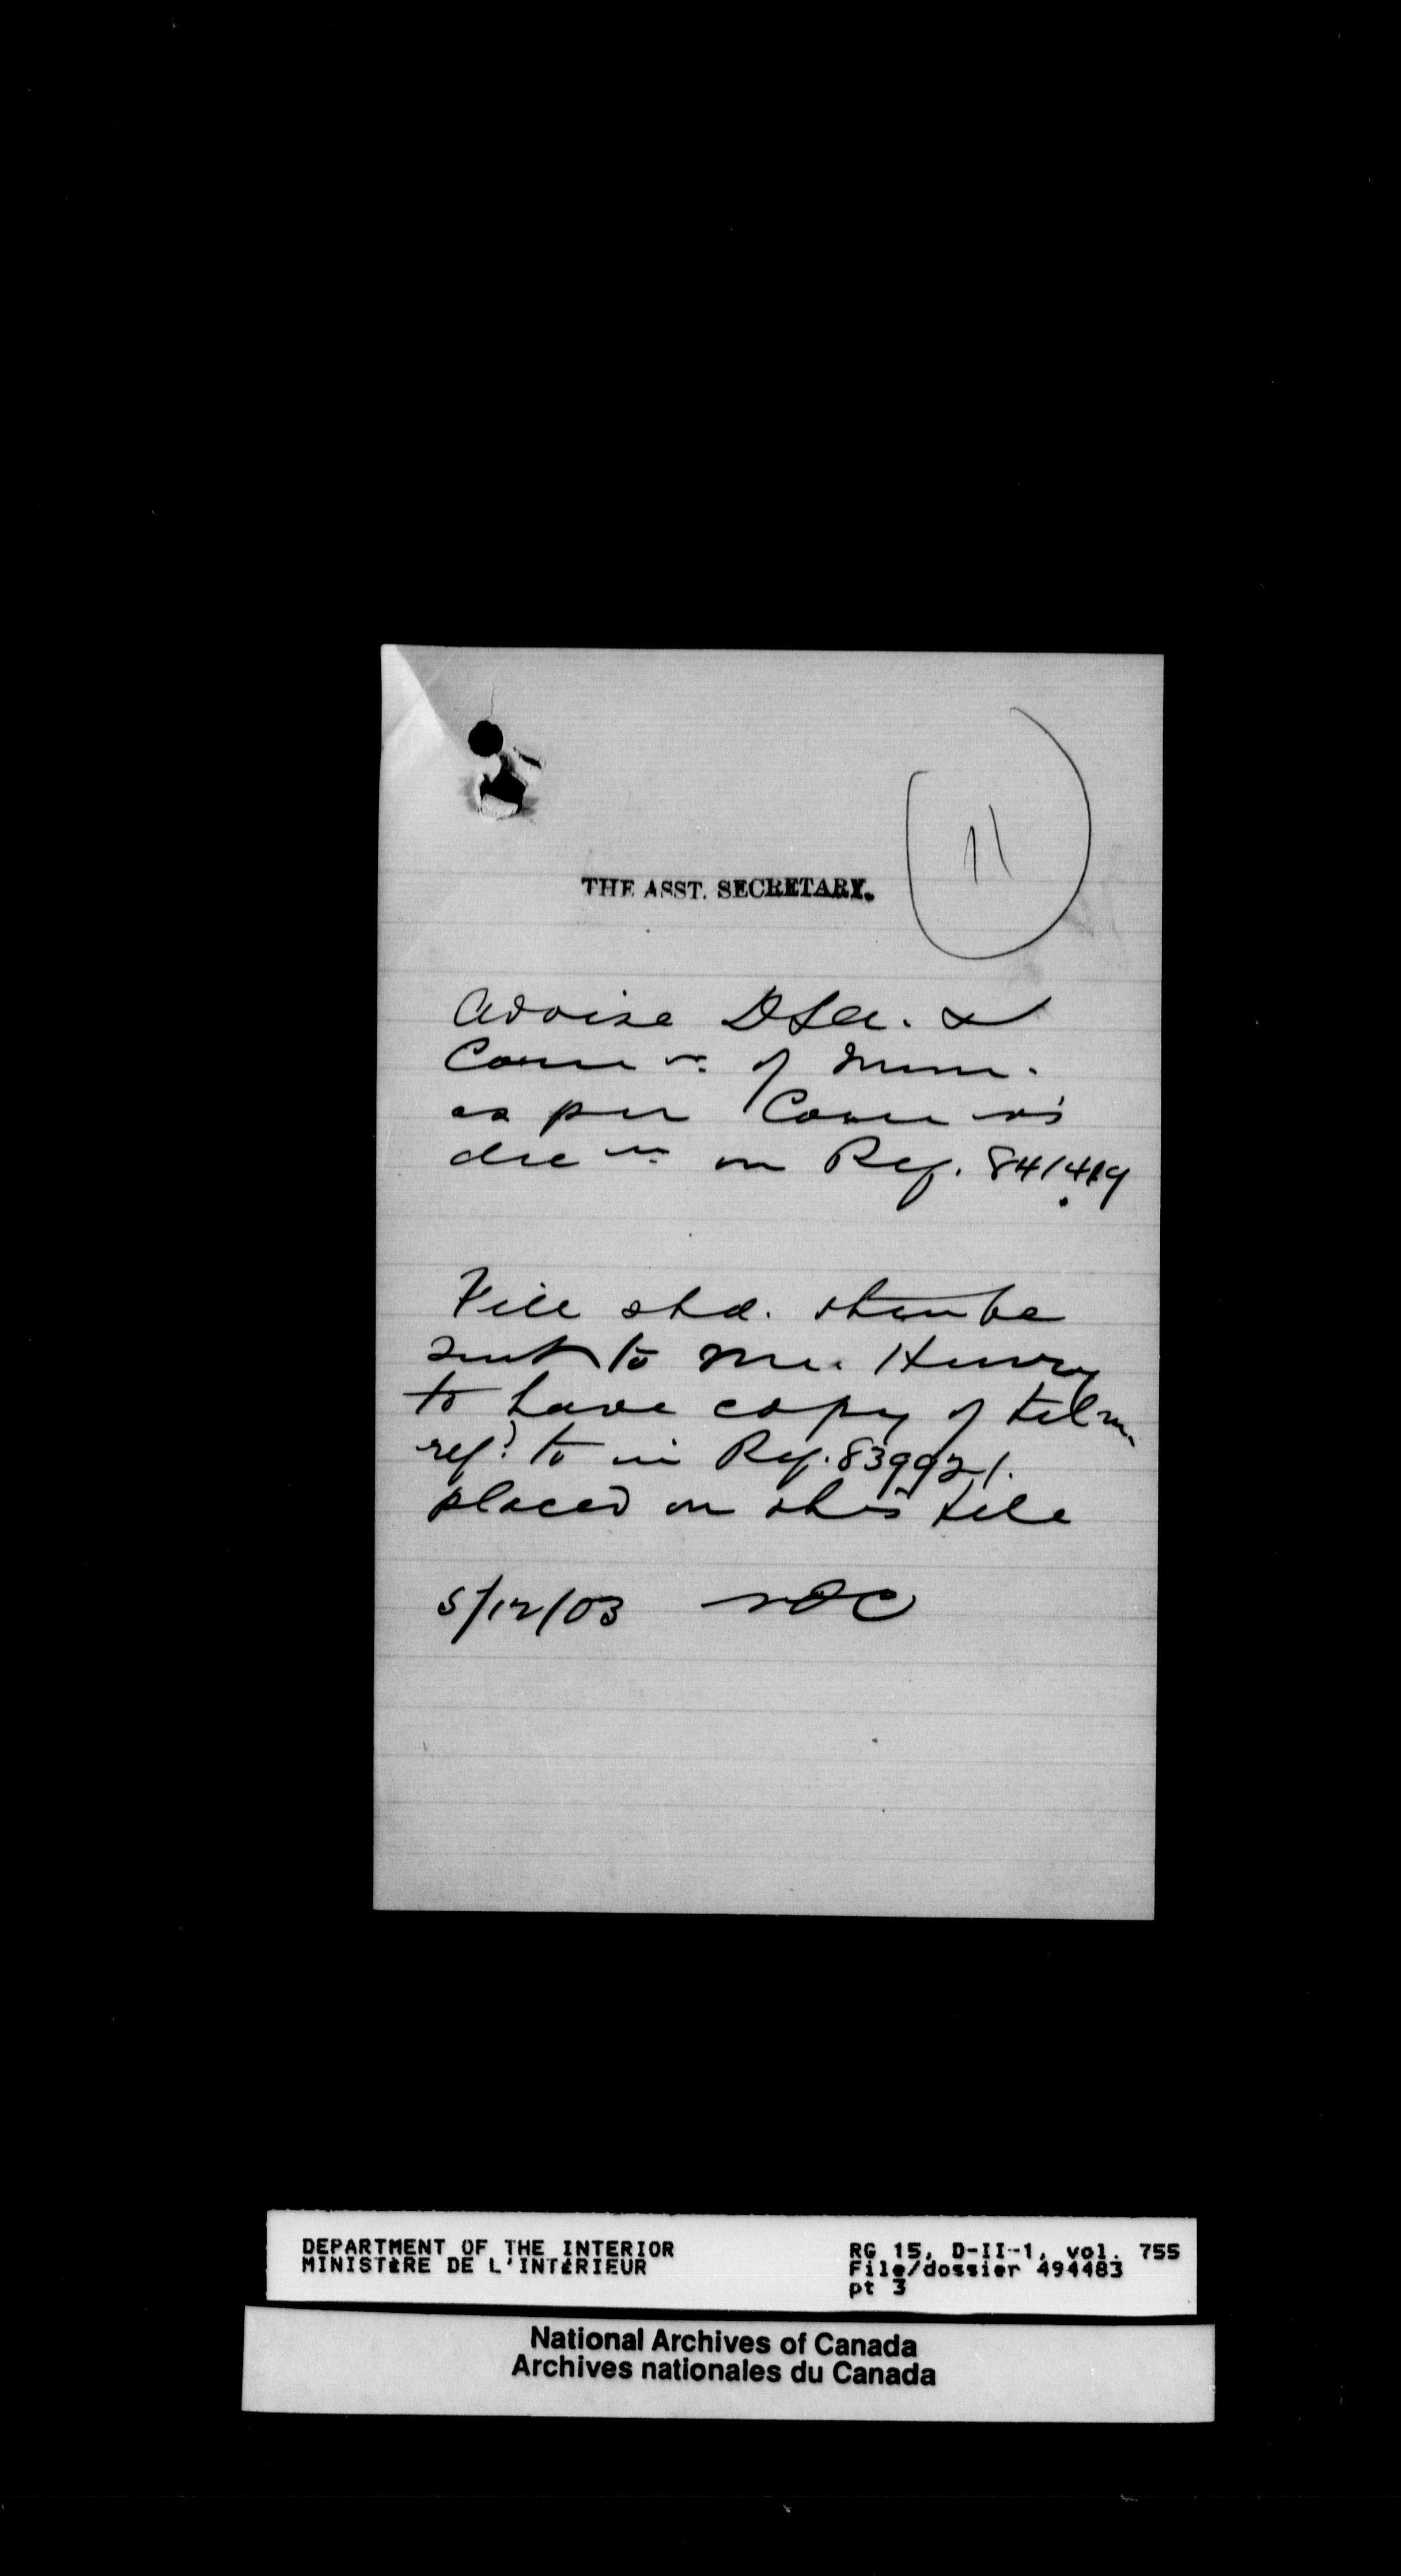 11
THE ASST. SECRETARY.
Advise DLA. &
Comr. of Imm.
as per Comr's
dirn. on Ref. 841419
File shd. then be
sent to Mr. Henry
to have copy of telm.
refd. to in Ref. 839921.
placed on this file
5/12/03
DEPARTMENT OF THE INTERIOR
MINISTÈRE DE L'INTÉRIEUR
RG 15, D-II-1, vol. 755
File/dossier 494483
pt 3
National Archives of Canada
Archives nationales du Canada